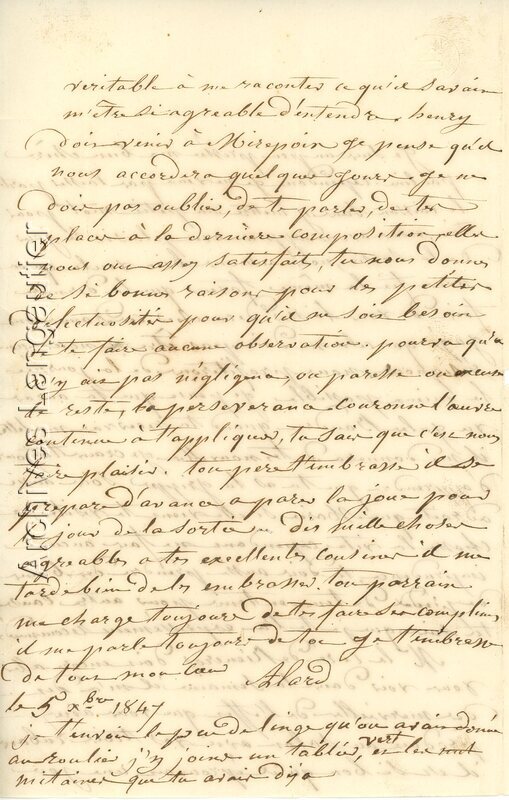 veritable à me raconter ce qu'il savait
m'être si agreable d'entendre. henry
doit venir à Mirepoix je pense qu'il
nous accordera quelques jours. je ne
dois pas oublier, de te parler, de tes
places à la dernière composition, elles
nous ont assez satisfait, tu nous donnes
de si bonnes raisons pour les petites
defectuosités pour qu'il soit besoin
te faire aucune observation. pourvu qu'il
n'y ait pas négligence, ou paresse
le reste, la perseverance couronne l'œuvre
continue à t'appliquer, tu sais que c'est nous
faire plaisir. ton père t'embrasse il se
prepare d'avance a parer la joue pour
le jour de la sortie dis mille choses
agreables a tes excellentes cousines il me
tarde bien de les embrasser. ton parrain
me charge toujours de te faire ses complim
il me parle toujours de toi je t'embrasse
de tout mon cœur
Alard
le 5 xbre 1847
je t'envoie le peu de linge qu'on avait donné
au roulier j'y joins un tablier vert, et les
mitaines que tu avais deja
Archives Langautier